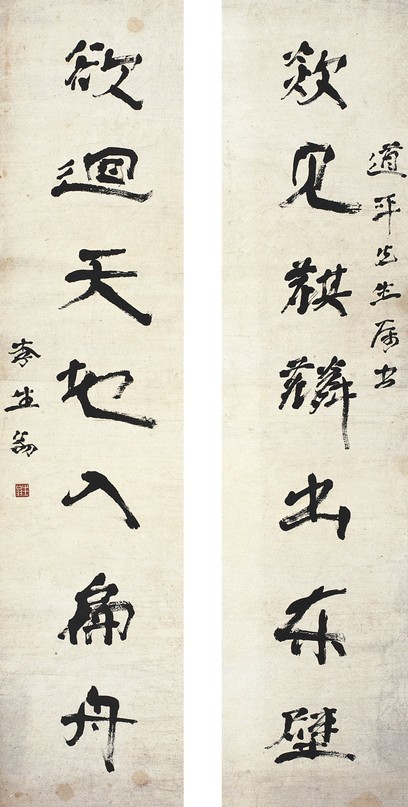 道平先生属书
欻见麒麟出东壁
欲迴天地入扁舟
李生翁